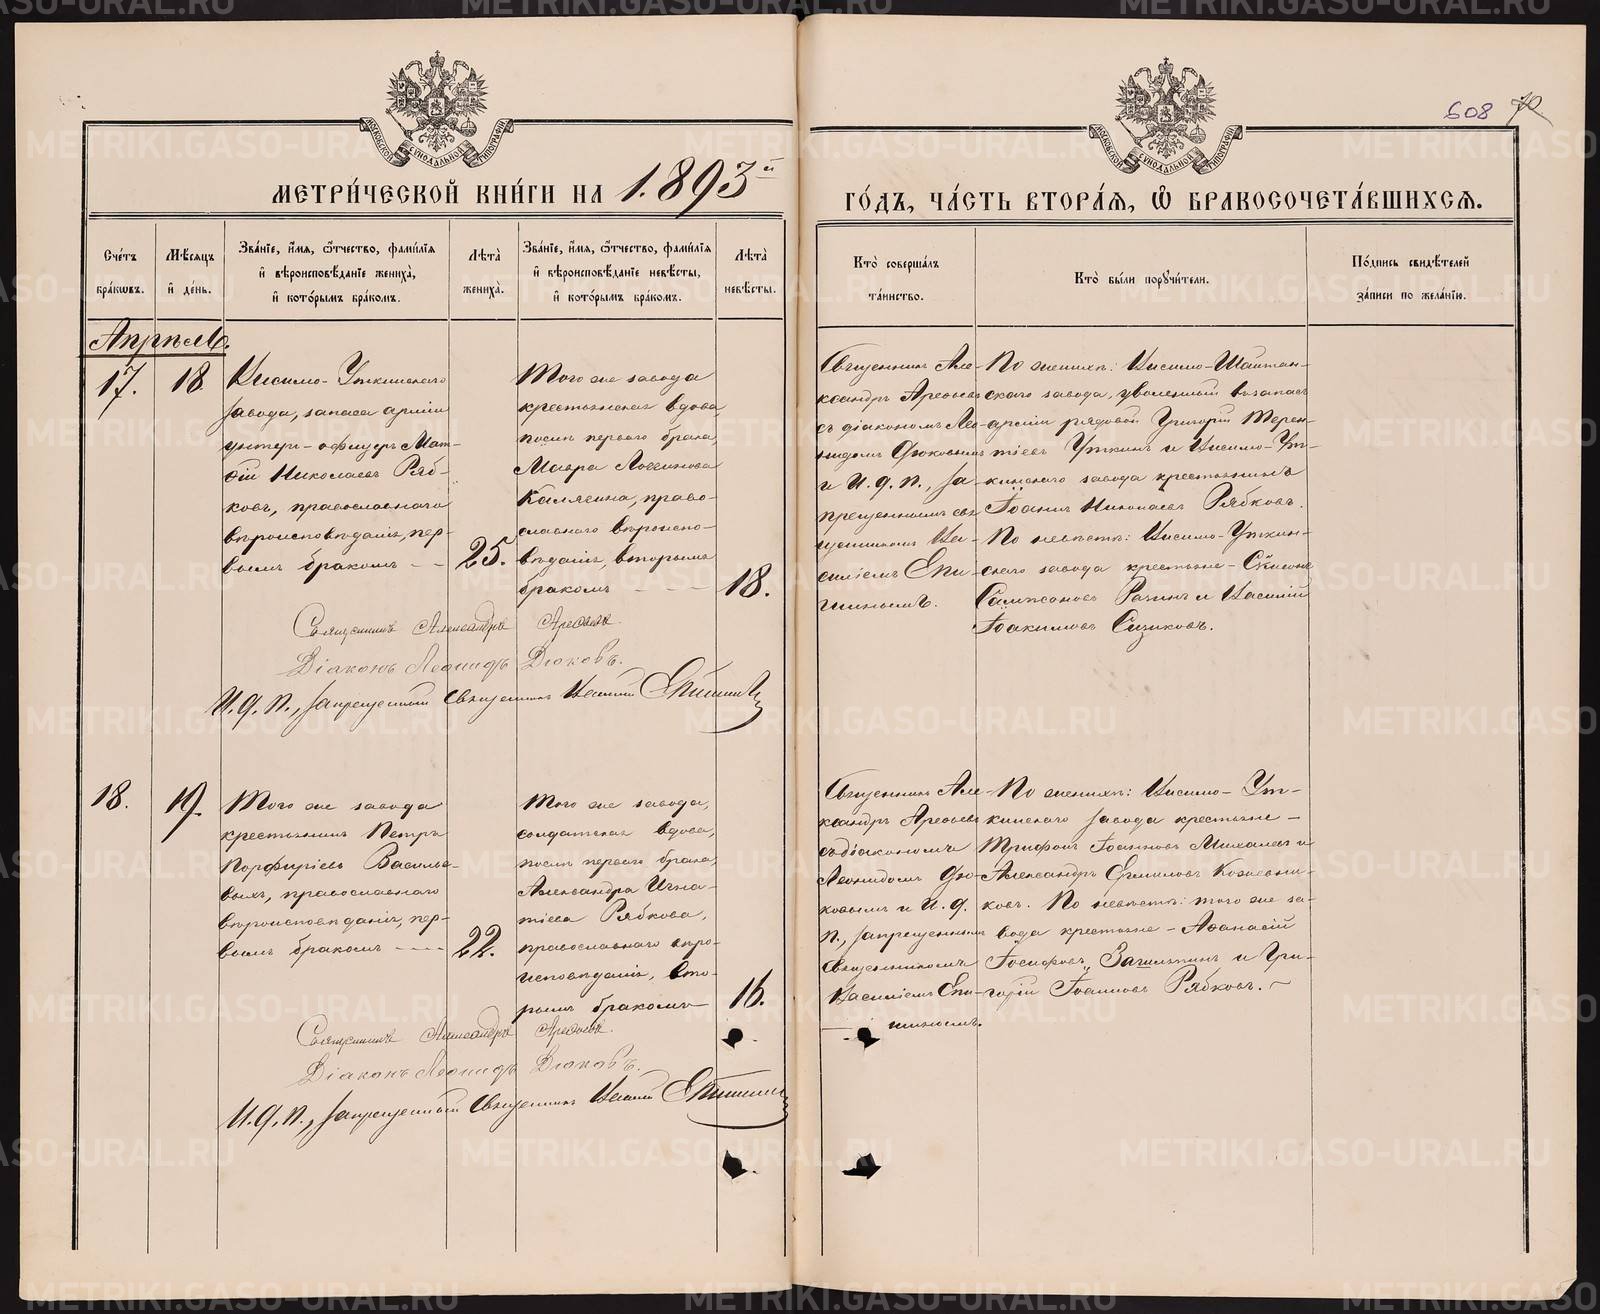 608 70
МОСКОВСКОЙ СУНОДАЛЬНОЙ ТИПОГРАФІИ
МОСКОВСКОЙ СУНОДАЛЬНОЙ ТИПОГРАФІИ
МЕТРИ́ЧЕСКОЙ КНИ́ГИ НА 1893й
ГО́ДЪ, ЧА́СТЬ ВТОРА́Я, Ѽ БРАКОСОЧЕТА́ВШИХСЯ.
Сче́тъ бра́кѡвъ.
Мѣ́сяцъ и҆ де́нь.
Зва́нїе, и҆́мя, ѻ҆́тчество, фами́лїя и҆ вѣроисповѣ́данїе жениха̀, и҆ кото́рымъ бра́комъ.
Лѣта̀ жениха̀.
Зва́нїе, и҆́мя, ѻ҆́тчество, фами́лїя и҆ вѣроисповѣ́данїе невѣ́сты, и҆ кото́рымъ бра́комъ.
Лѣта̀ невѣ́сты.
Кто̀ соверша́лъ та́инство.
Кто̀ бы́ли порꙋчи́тели.
По́дпись свидѣ́телей за́писи по жела́нїю.
Апрѣль.
17.
18
Висимо-Уткинскаго
завода, запаса арміи
унтеръ-офицеръ Мат-
ѳій Николаевъ Ряб-
ковъ, православнаго
вѣроисповѣданія, пер-
вымъ бракомъ - -
25.
Того же завода
крестьянская вдова,
послѣ перваго брака,
Мавра Логгинова
Калягина, право-
славнаго вѣроиспо-
вѣданія, вторымъ
бракомъ - - -
18.
Священникъ Але-
ксандръ Арефьевъ
съ діакономъ Лео-
нидомъ Дюковымъ
и И. д. п., за-
прещеннымъ свя-
щенникомъ Ва-
силіемъ Епи-
шинымъ.
По женихѣ: Висимо-Шайтан-
скаго завода, уволенный въ запасъ
арміи рядовой Григорій Терен-
тіевъ Уткинъ и Висимо-Ут-
кинскаго завода крестьянинъ
Іоаннъ Николаевъ Рябковъ.
По невѣстѣ: Висимо-Уткин-
скаго завода крестьяне -
Сампсоновъ и Василій
Іоакимовъ Сизиковъ.
Священникъ Александръ Арефьевъ.
Діаконъ Леонидъ Дюковъ.
И. д. п., запрещенный Священникъ Василій Епишинъ
18.
19.
Того же завода
крестьянинъ Петръ
Порфиріевъ Василье-
выхъ, православнаго
вѣроисповѣданія, пер-
вымъ бракомъ - - -
22.
Того же завода,
солдатская вдова,
послѣ перваго брака,
Александра Игна-
тіева Рябкова,
православнаго вѣро-
исповѣданія, вто-
рымъ бракомъ -
16.
Священникъ Але-
ксандръ Арефьевъ
съ діакономъ
Леонидомъ Дю-
ковымъ и И. д.
п., запрещеннымъ
Священникомъ
Василіемъ Епи-
шинымъ.
По женихѣ: Висимо-Ут-
кинскаго завода крестьяне -
Трифонъ Іоанновъ Михалевъ и
Александръ Ермиловъ
ковъ. По невѣстѣ: того же за-
вода крестьяне - Аѳанасій
Іосифовъ и Гри-
горій Іоанновъ Рябковъ.
Священникъ Александръ Арефьевъ.
Діаконъ Леонидъ Дюковъ.
И. д. п., запрещенный Священникъ Василій Епишинъ
METRIKI.GASO-URAL.RU